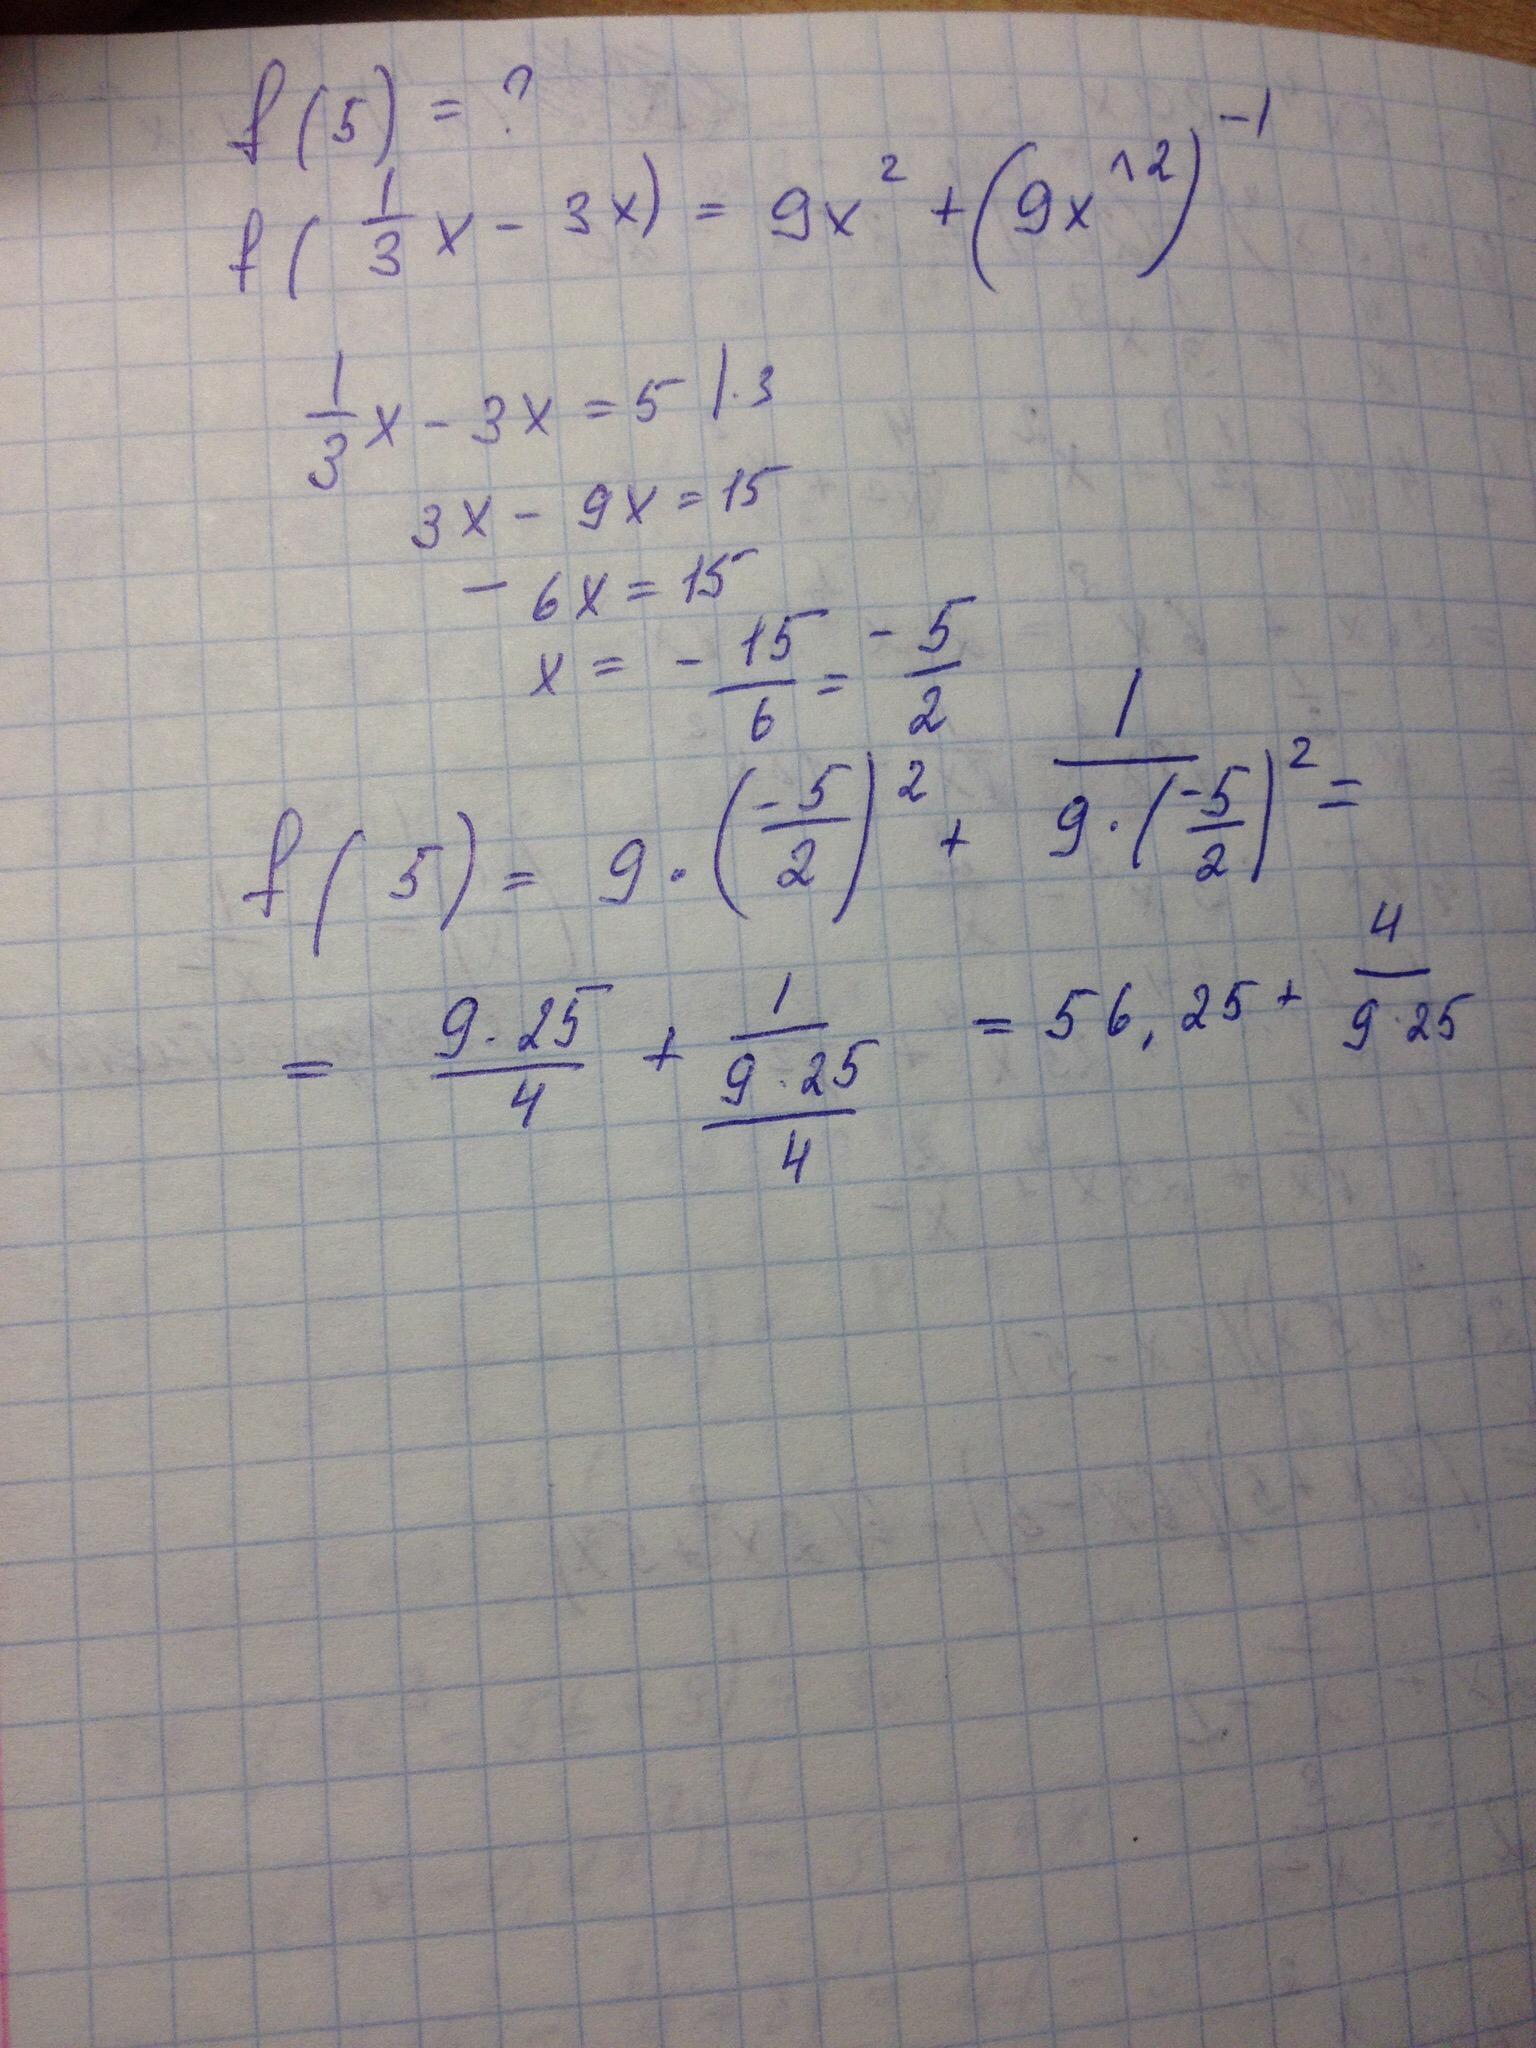 f(5) = ?
f(1/3 x - 3x) = 9x² + (9x^2)⁻¹
1/3 x - 3x = 5 |·3
3x - 9x = 15
- 6x = 15
x = - 15/6 = - 5/2
f(5) = 9·(-5/2)² + 1/(9·(-5/2)²) =
= 9·25/4 + 1/(9·25/4) = 56,25 + 4/(9·25)